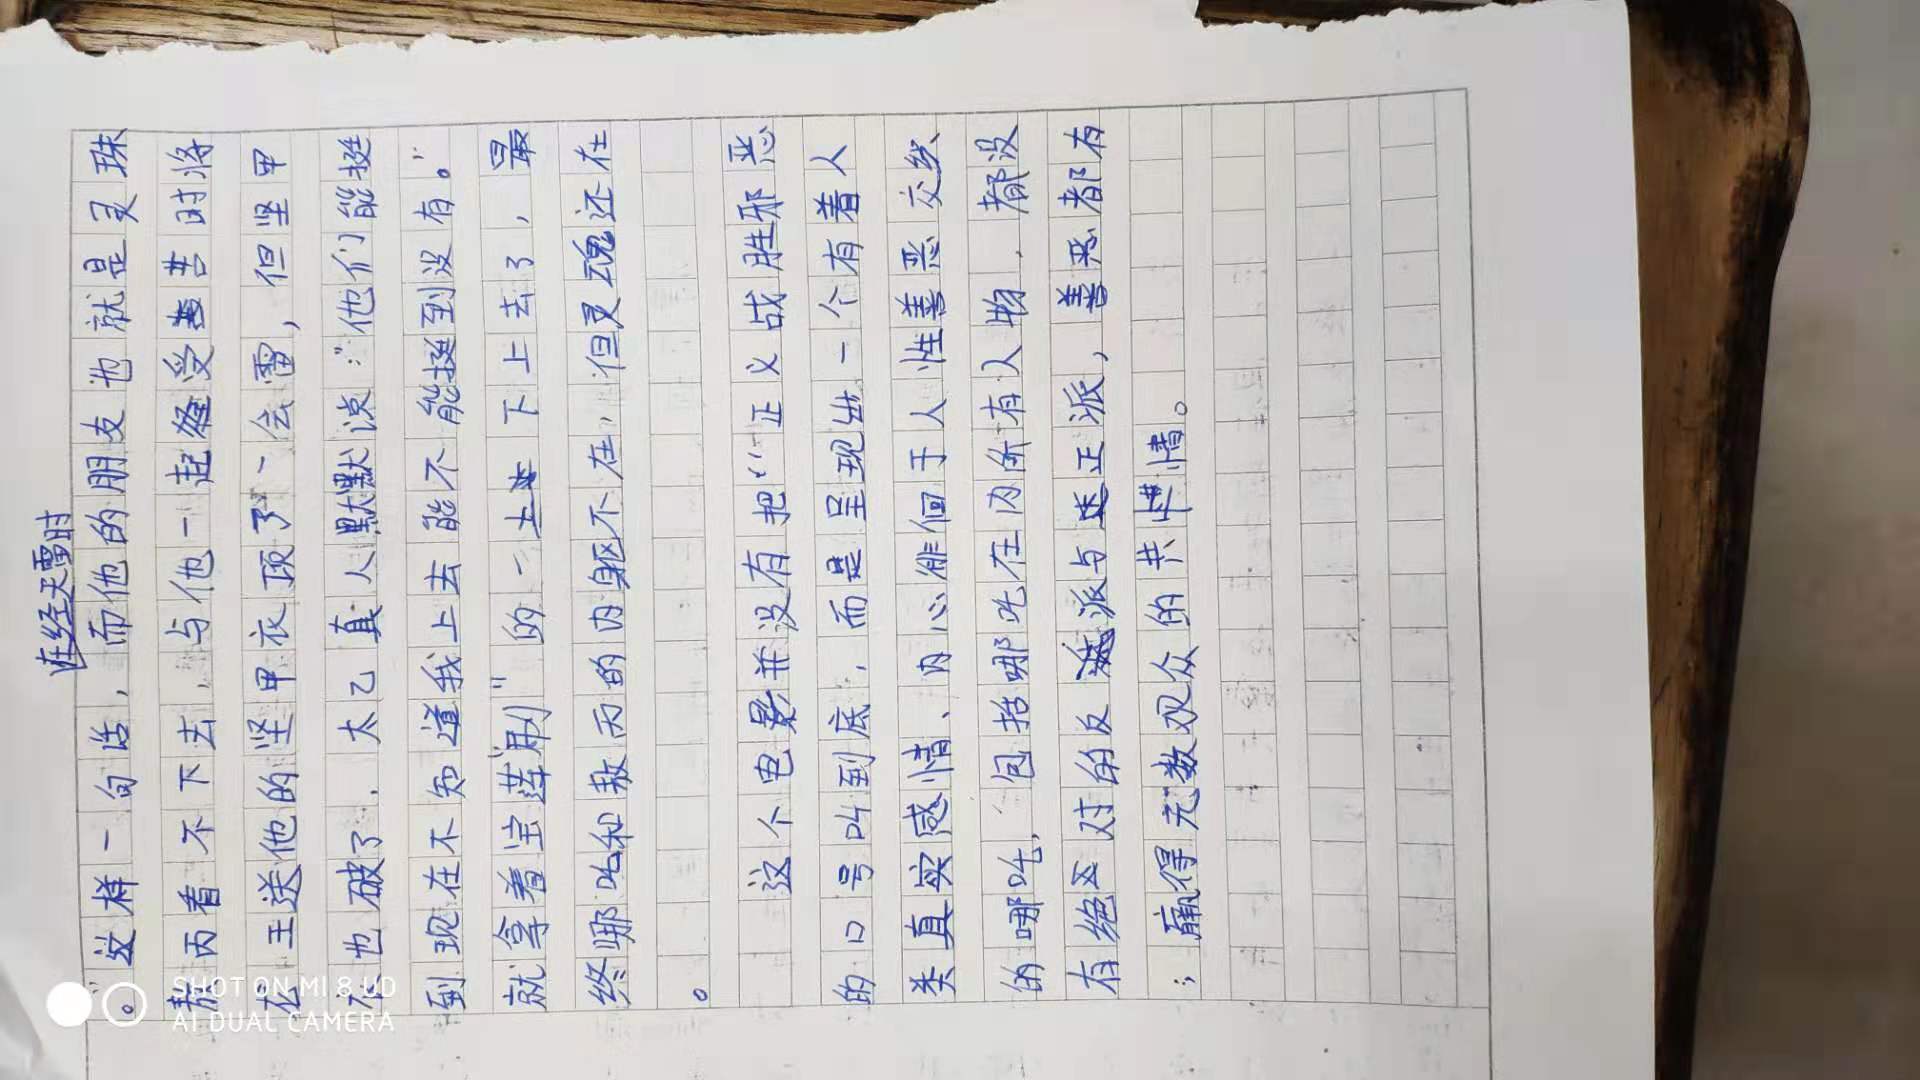 在经天雷时
。”这样一句话，而他的朋友也就是灵珠
敖丙看不下去，与他一起经受苦时将
龙王送他的坚甲衣顶了一会雷，但坚甲
衣也破了，太乙真人默默说：“他们能挺
到现在不知道我上去能不能挺到没有。”
就拿着宝莲用"的一上下上去了，最
终哪吒和敖丙的内躯不在，但灵魂还在
。
这个电影并没有把“正义战胜邪恶
的口号叫到底，而是呈现出一个有着人
类真实感情、内心徘徊于人性善恶交织
的哪吒，包括哪吒在内所有人物，都没
有绝对的反派与正派，善恶都有
；赢得无数观众的共情。
SHOT ON MI 8 UD
AI DUAL CAMERA